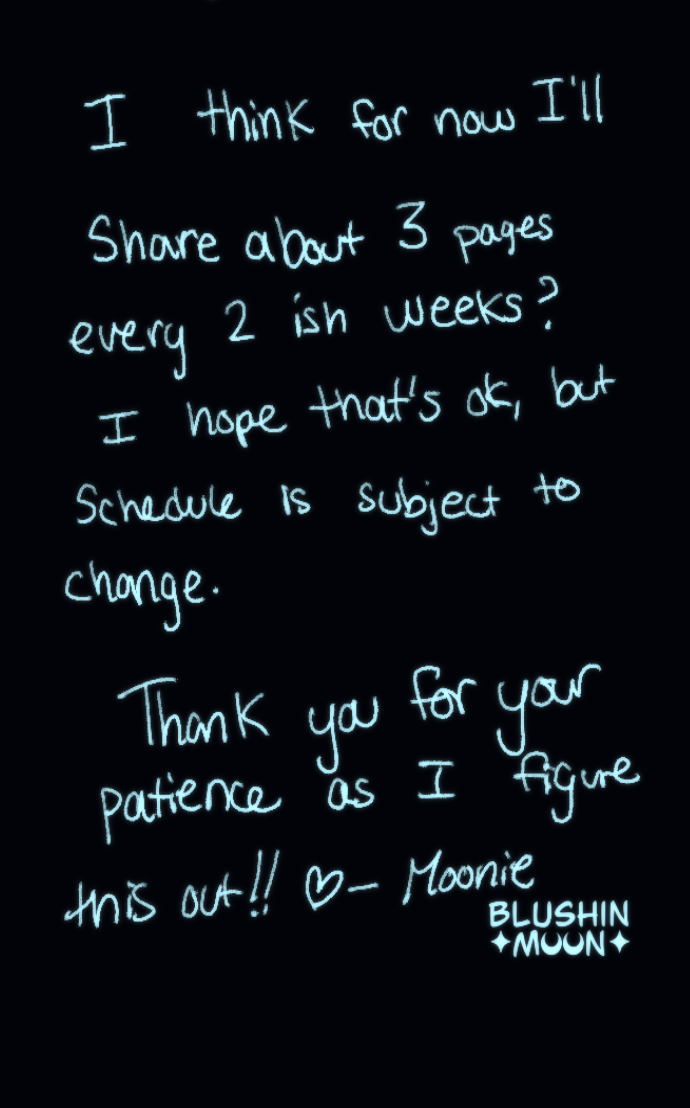 I think for now I'll
Share about 3 pages
every 2 ish weeks?
I hope that's ok, but
Schedule is subject to
change.
Thank you for your
patience as I figure
this out!! ♡- Moonie
BLUSHIN
✦MOON✦